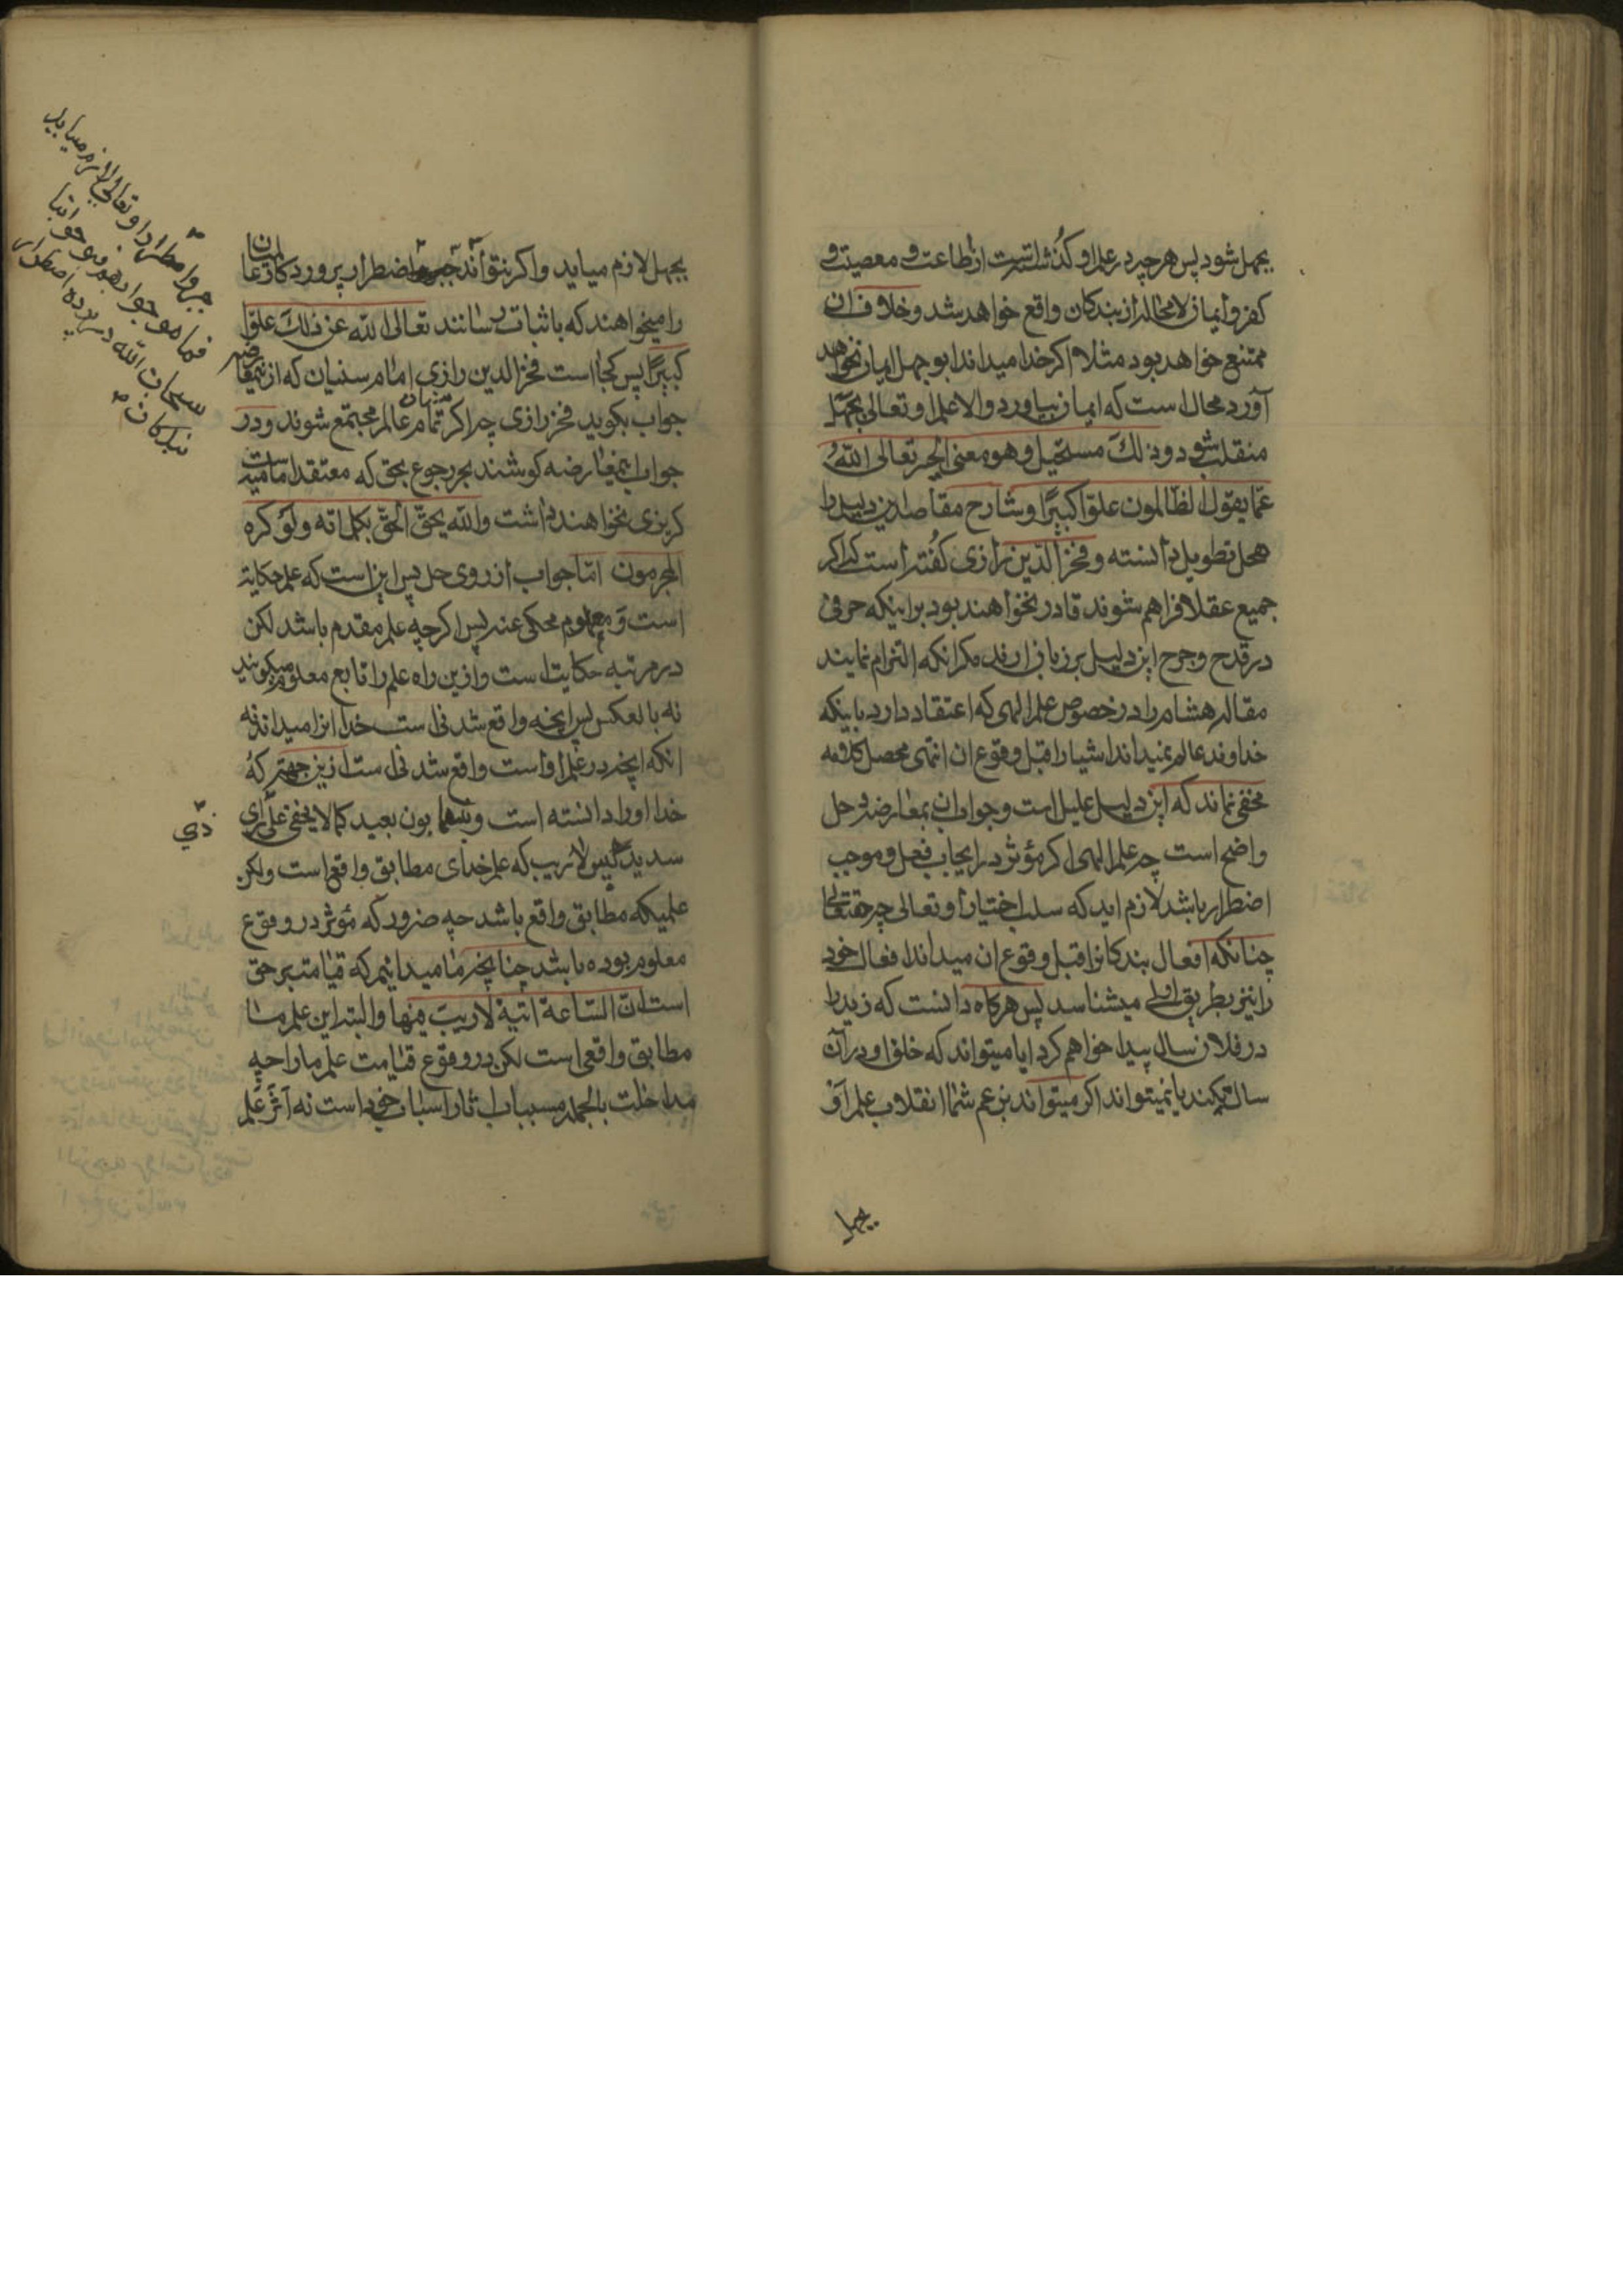 بجهل شود پس هرچه در علم او کذشته است از طاعت و معصیت و
کفر و ایمان لامحاله از بندکان واقع خواهد شد و خلاف ان
ممتنع خواهد بود مثلا اکر خدا میداند ابو جهل ایمان نخواهد
آورد محال است که ایمان بیاورد والا علم او تعالی بجهل
منقلب شود و ذلك مستحیل و هو معنی الجبر تعالی اللّه
عمّا یقول الظالمون علوّا کبیرًا و شارح مقاصد این دلیل را
محل تطویل دانسته و فخر الدین رازی کفته است که اکر
جمیع عقلا فراهم شوند قادر نخواهند بود بر اینکه حرفی
در قدح و جرح این دلیل بر زبان ارند مکر انکه التزام نمایند
مقاله هشام را در خصوص علم الهی که اعتقاد دارد باینکه
خداوند عالم نمیداند اشیا را قبل وقوع ان انتهی محصل کلامه
مخفی نماند که این دلیل علیل است و جواب ان بمعارضه و حل
واضح است چه علم الهی اکر مؤثر در ایجاب فعل و موجب
اضطرار باشد لازم اید که سلب اختیار او تعالی چه حقتعالی
چنانکه افعال بندکانرا قبل وقوع ان میداند افعال خود
را نیز بطریق اولی میشناسد پس هرکاه دانست که زید را
در فلان سال پیدا خواهم کرد ایا میتواند که خلق او در آن
سال نکند یا نمیتواند اکر میتواند بزعم شما انقلاب علم او
بجهل
بجهل لازم میاید و اکر نتواند اضطرار پروردکار عالمیان
را میخواهند که باثبات رسانند تعالی اللّه عن ذلك علوّا
کبیرًا پس کجا است فخر الدین رازی امام سنیان که ازین معارضه
جواب بکوید فخر رازی چرا اکر تمام عالم مجتمع شوند و در
جواب این معارضه کوشند بجز رجوع بحق که معتقد امامیه است
کریزی نخواهند داشت واللّه یحقّ الحقّ بکلماته و لو کره
المجرمون امّا جواب از روی حل پس این است که علم حکایة
است و معلوم محکی عنه پس اکرچه علم مقدم باشد لکن
در مرتبه حکایت است و ازین راه علم را تابع معلوم میکویند
نه بالعکس پس انچه واقع شدنی است خدا انرا میداند نه
انکه انچه در علم او است واقع شدنی است ازین جهت که
خدا او را دانسته است و بینهما بون بعید کما لا یخفی علی رای
ذي
سدید پس لا ریب که علم خدای مطابق واقع است ولکن
علمیکه مطابق واقع باشد چه ضرور که مؤثر در وقوع
معلوم بوده باشد چنانچه ما میدانیم که قیامت بر حق
است ان الساعة اتیة لا ریب فیها والبته این علم ما
مطابق واقعی است لکن در وقوع قیامت علم ما را چه
مداخلت بالجمله مسببات اثار اسباب خود است نه اثر علم
جبر و اضطرار او تعالی لازم میاید
فما هو جوابهم فهو جوابنا
سبحان اللّه در پرده اضطرار
بندکان